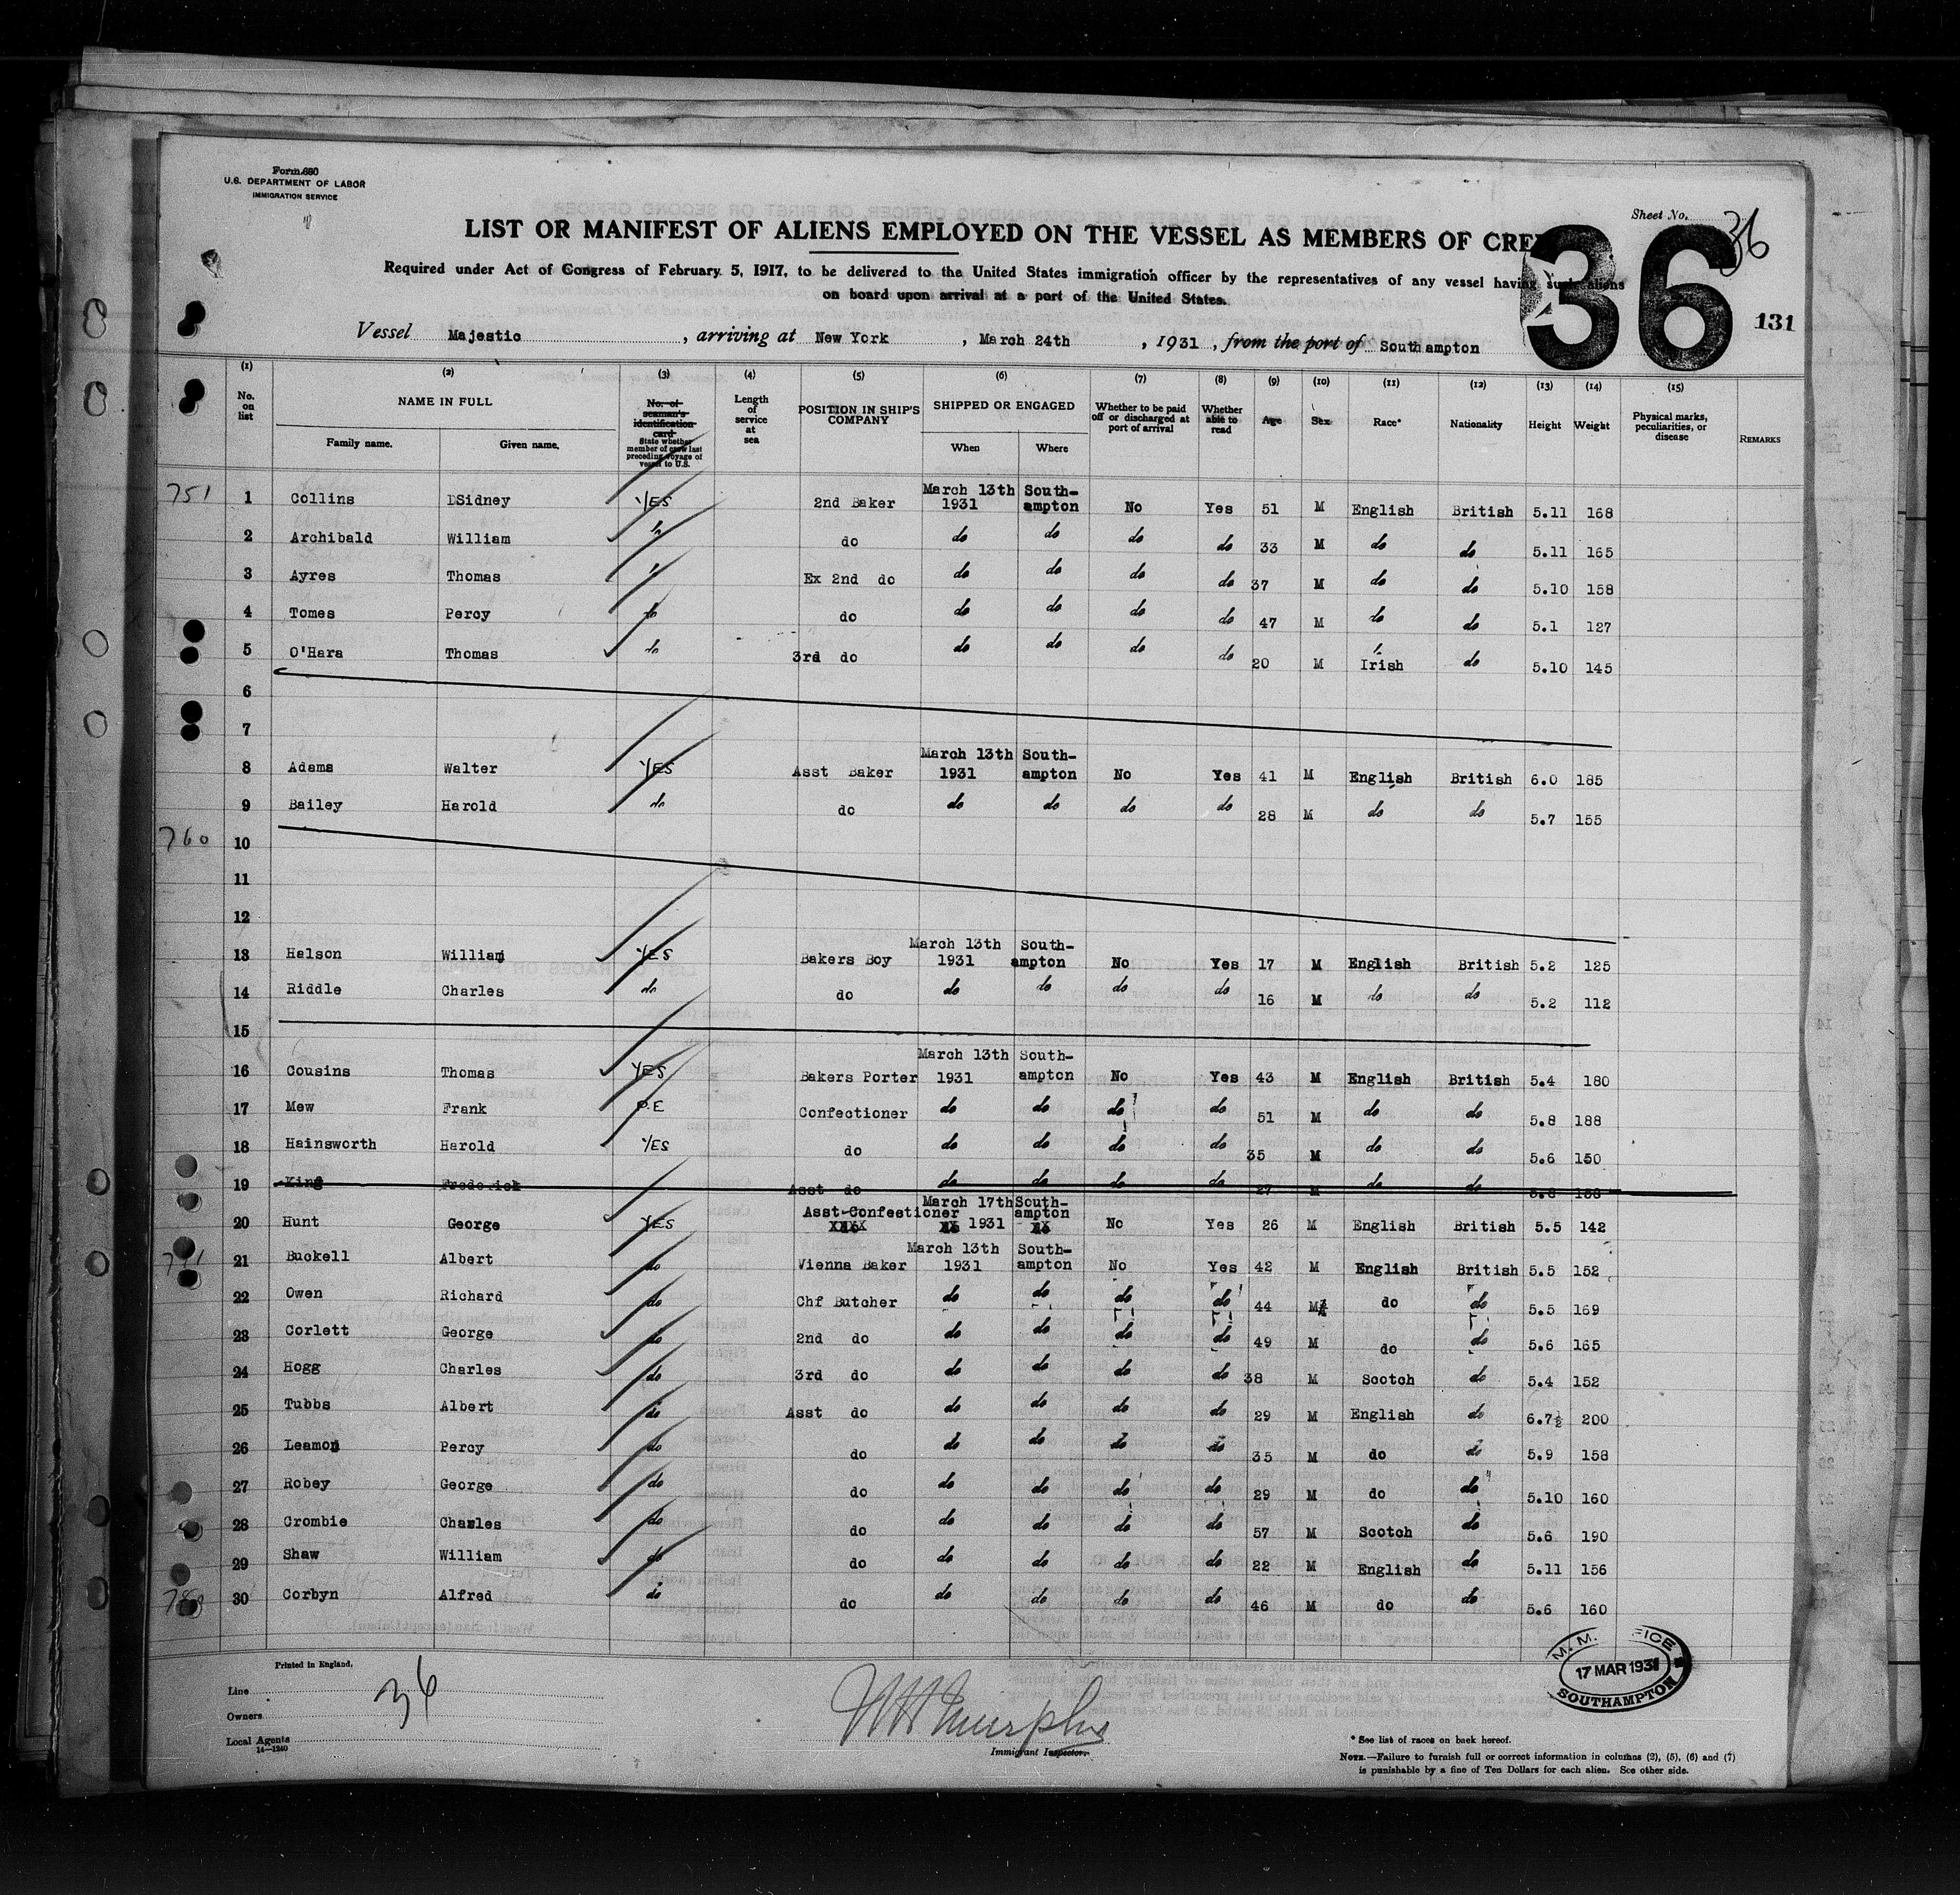 Form 680
U.S. DEPARTMENT OF LABOR
IMMIGRATION SERVICE
Sheet No. 36
LIST OR MANIFEST OF ALIENS EMPLOYED ON THE VESSEL AS MEMBERS OF CREW
36
Required under Act of Congress of February 5, 1917, to be delivered to the United States immigration officer by the representatives of any vessel having such aliens
on board upon arrival at a port of the United States.
131
Vessel Majestic, arriving at New York, March 24th, 1931, from the port of Southampton
(1) (2) (3) (4) (5) (6) (7) (8) (9) (10) (11) (12) (13) (14) (15)
No. on list NAME IN FULL Family name. Given name. No. of seaman's identification card State whether member of crew last preceding voyage of vessel to U.S. Length of service at sea POSITION IN SHIP'S COMPANY SHIPPED OR ENGAGED When Where Whether to be paid off or discharged at port of arrival Whether able to read Age Sex Race* Nationality Height Weight Physical marks, peculiarities, or disease REMARKS
751 1 Collins DSidney YES 2nd Baker March 13th 1931 South-ampton No Yes 51 M English British 5.11 168
2 Archibald William do do do do do 33 M do do 5.11 165
3 Ayres Thomas Ex 2nd do do do do do 37 M do do 5.10 158
4 Tomes Percy do do do do do do 47 M do do 5.1 127
5 O'Hara Thomas do 3rd do do do do do 20 M Irish do 5.10 145
6
7
8 Adams Walter YES Asst Baker March 13th 1931 South-ampton No Yes 41 M English British 6.0 185
9 Bailey Harold do do do do do do 28 M do do 5.7 155
760 10
11
12
13 Halson William YES Bakers Boy March 13th 1931 South-ampton No Yes 17 M English British 5.2 125
14 Riddle Charles do do do do do do 16 M do do 5.2 112
15
16 Cousins Thomas YES Bakers Porter March 13th 1931 South-ampton No Yes 43 M English British 5.4 180
17 Mew Frank O.E Confectioner do do do do 51 M do do 5.8 188
18 Hainsworth Harold YES do do do do do 35 M do do 5.6 150
19 King Frederick Asst do do do do do 27 M do do
20 Hunt George YES Asst Confectioner March 17th 1931 South-ampton No Yes 26 M English British 5.5 142
21 Buckell Albert do Vienna Baker March 13th 1931 South-ampton No Yes 42 M English British 5.5 152
22 Owen Richard do Chf Butcher do do do do 44 M do do 5.5 169
23 Corlett George do 2nd do do do do do 49 M do do 5.6 165
24 Hogg Charles do 3rd do do do do do 38 M Scotch do 5.4 152
25 Tubbs Albert do Asst do do do do do 29 M English do 6.7½ 200
26 Leamon Percy do do do do do do 35 M do do 5.9 158
27 Robey George do do do do do do 29 M do do 5.10 160
28 Crombie Charles do do do do do do 57 M Scotch do 5.6 190
29 Shaw William do do do do do do 22 M English do 5.11 156
30 Corbyn Alfred do do do do do do 46 M do do 5.6 160
Printed in England.
Line
Owners
Local Agents
14—1240
36
Murphy
Immigrant Inspector.
17 MAR 1931
SOUTHAMPTON
* See list of races on back hereof.
NOTE.—Failure to furnish full or correct information in columns (2), (5), (6) and (7)
is punishable by a fine of Ten Dollars for each alien. See other side.